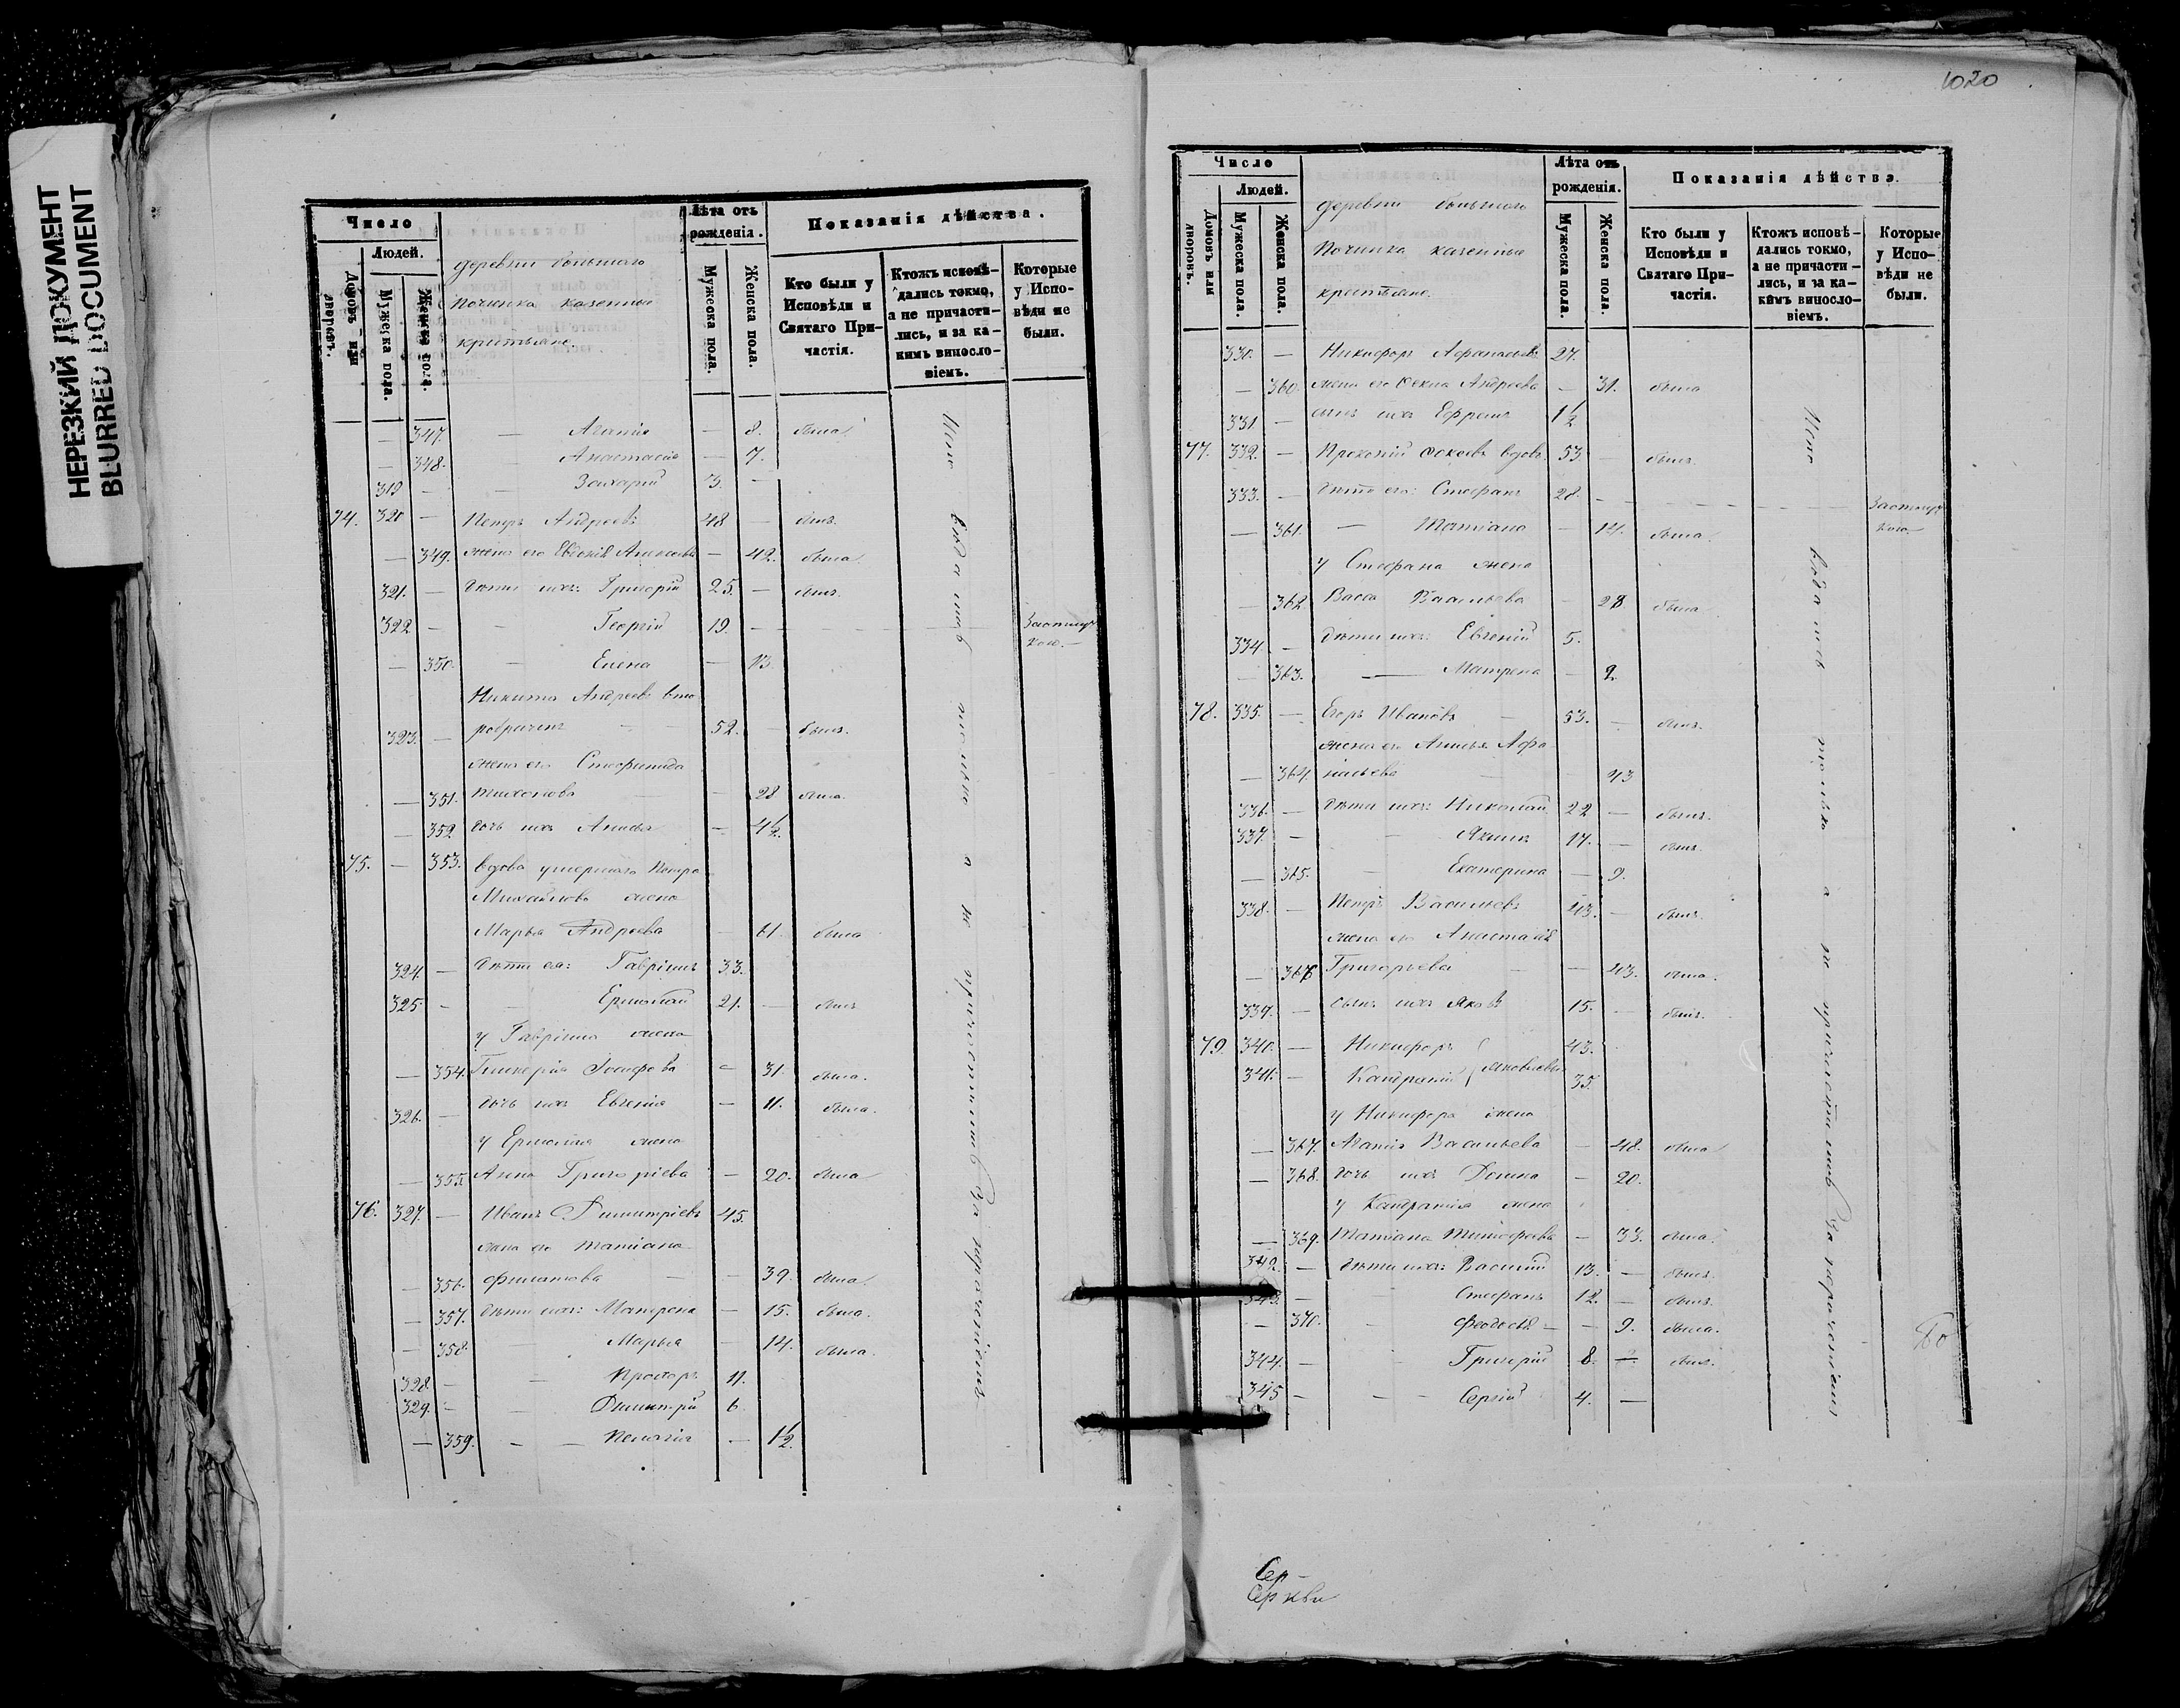 НЕРЕЗКИЙ ДОКУМЕНТ
BLURRED DOCUMENT
Число
Людей.
Домовъ или дворовъ.
Мужеска пола.
Женска пола.
деревни большаго
Починка казенные
крестьяне.
Лѣта отъ рожденія.
Мужеска пола.
Женска пола.
Показанія дѣйства.
Кто были у Исповѣди и Святаго Причастія.
Ктожъ исповѣдались токмо, а не причастились, и за какимъ винословіемъ.
Которые у Исповѣди не были.
— 347. — Агапія — 8. была
— 348. — Анастасія — 7.
319 — — Захарій 3. —
74. 320 — Петръ Андреевъ 48 — былъ.
— 349. жена его Евдокія — 42. была
321. — дѣти ихъ: Григорій 25. — былъ.
322 — — Георгій 19. —
— 350. — Елена — 13.
Никита Андреевъ вто
робрачен
323. — 52. — былъ.
жена его Стефанида
— 351. Тихонова — 28 была.
— 352 дочь ихъ Анисья — 4½.
75. — 353. вдова умершаго Петра
Михайлова жена
Марья Андреева — 61. была
324. — дѣти ея: Гавріилъ 33.
325. — — Ермолай 21. — былъ
у Гавріила жена
— 354. Гликерія Іосифова — 31. была.
326. — дочь ихъ Евгенія — 11. была.
у Ермолая жена
— 355. Анна Григоріева — 20. была
76. 327. — Иванъ Димитріевъ 45.
жена его Татіана
— 356. Филатова — 39. была
— 357. дѣти ихъ: Матрона — 15. была.
— 358. — Марья — 14. была.
328. — — Прохоръ 11.
329. — — Димитрій 6.
— 359. — — Пелагія — 1½.
а не причастились За нерачениемъ
1020
Число
Людей.
Домовъ или дворовъ.
Мужеска пола.
Женска пола.
деревни большаго
Починка казенные
крестьяне.
Лѣта отъ рожденія.
Мужеска пола.
Женска пола.
Показанія дѣйства.
Кто были у Исповѣди и Святаго Причастія.
Ктожъ исповѣдались токмо, а не причастились, и за какимъ винословіемъ.
Которые у Исповѣди не были.
330. — Никифоръ Афанасьевъ 27.
— 360. жена его Фекла Андреева — 31. была
331 — сынъ ихъ Ефремъ 1½
77. 332. — Прокопій Фокеевъ вдовъ 53. — былъ.
333. — дѣти его: Стефанъ 28. —
— 361. — Татіана — 14. была.
у Стефана жена
— 362 Васса Васильева — 28. была
334. — дѣти ихъ: Евгений 5.
— 363. — Матрена — 2.
78. 335. — Егоръ Ивановъ — 53. — былъ.
жена его Анисья Афа
— 364. насьева — 43
336. — дѣти ихъ: Николай 22 — былъ.
337. — — Якимъ 17. — былъ
— 365. — Екатерина — 9.
338. — Петръ Васильевъ 43. — былъ.
жена его Анастасія
— 366 Григорьева — 43. была.
339. — сынъ ихъ Яковъ 15. — былъ.
79. 340. — Никифоръ 43.
341. — Кандратій Яковлевы 35.
у Никифора жена
— 367. Агапія Васильева — 48. была
— 368. дочь ихъ Домна — 20.
у Кандратія жена
— 369. Татіана Тимофеева — 33. была.
342. — дѣти ихъ: Василій 13. — былъ.
343. — — Стефанъ 12. — былъ.
— 370. — Феодосія — 9. была.
344. — — Григорій 8. — былъ.
345 — — Сергій 4. —
а не причастились За нерачениемъ
Сер-
Серкви